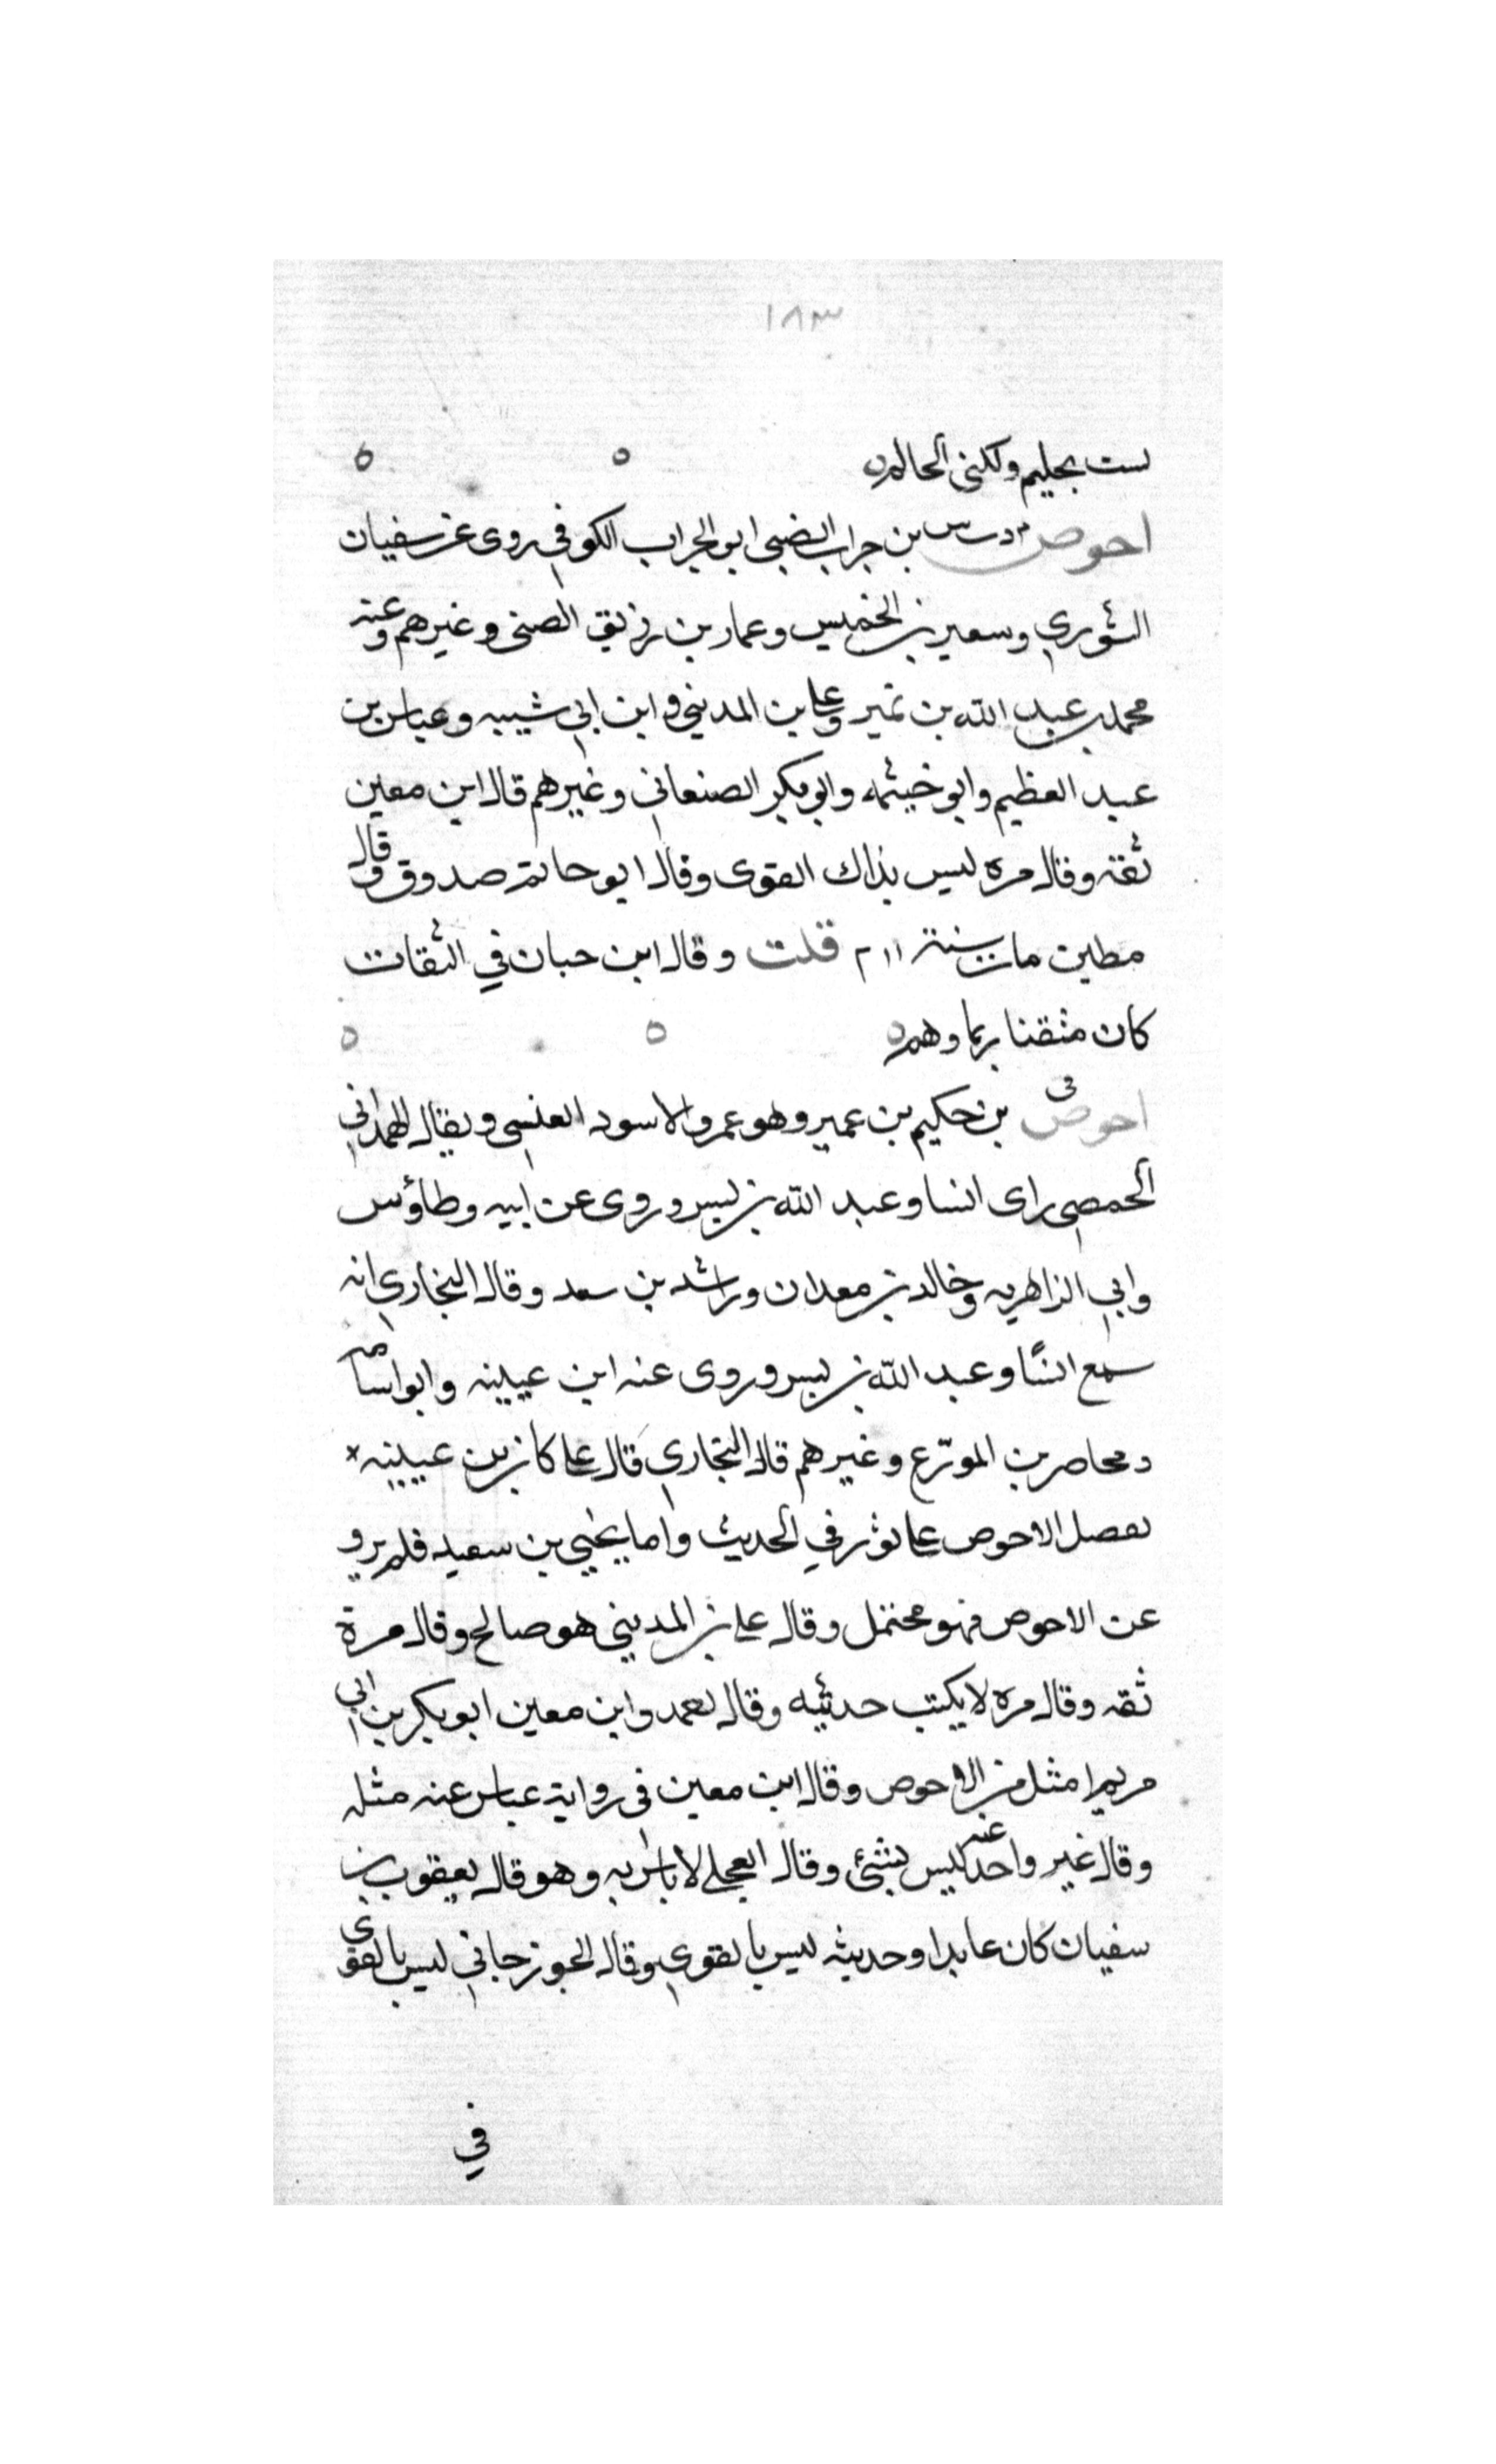 ١٨٣
لست بحليم ولكني اتحالم
احوص م د ت س بن جراب الضبى ابو الجراب الكوفي روى عن سفيان
الثوري وسعير بن الخميس وعمار بن رزيق الضبى وغيرهم وعنه
محمد بن عبد الله بن نمير وعلى بن المديني وابن ابي شيبه وعباس بن
عبد العظيم وابو خيثمه وابو بكر الصنعاني وغيرهم قال ابن معين
ثقه وقال مره ليس بذاك القوى وقال ابو حاتم صدوق وقال
مطين مات سنة ٢١١ قلت وقال ابن حبان في الثقات
كان متقنا ربما وهم
احوص ق بن حكيم بن عمير وهو عمرو الاسود العنسي ويقال الهمداني
الحمصي راى انسا وعبد الله بن بسر وروى عن ابيه وطاؤس
وابي الزاهريه وخالد بن معدان وراشد بن سعد وقال البخاري انه
سمع انسًا وعبد الله بن بسر وروى عنه ابن عيينه وابو اسامه
ومحاصر بن المورّع وغيرهم قال البخاري قال على كان بن عيينه
يفصل الاحوص على ثور في الحديث واما يحيي بن سعيد فلم يرو
عن الاحوص فهو محتمل وقال على بن المديني هو صالح وقال مرة
ثقه وقال مره لا يكتب حديثه وقال احمد وابن معين ابو بكر بن ابي
مريم امثل من الاحوص وقال ابن معين في رواية عباس عنه مثله
وقال غير واحد عنه ليس بشئ وقال العجلي لا باس به وهو قال يعقوب بن
سفيان كان عابدا وحديثه ليس بالقوي وقال الجوزجاني ليس بالقوى
في